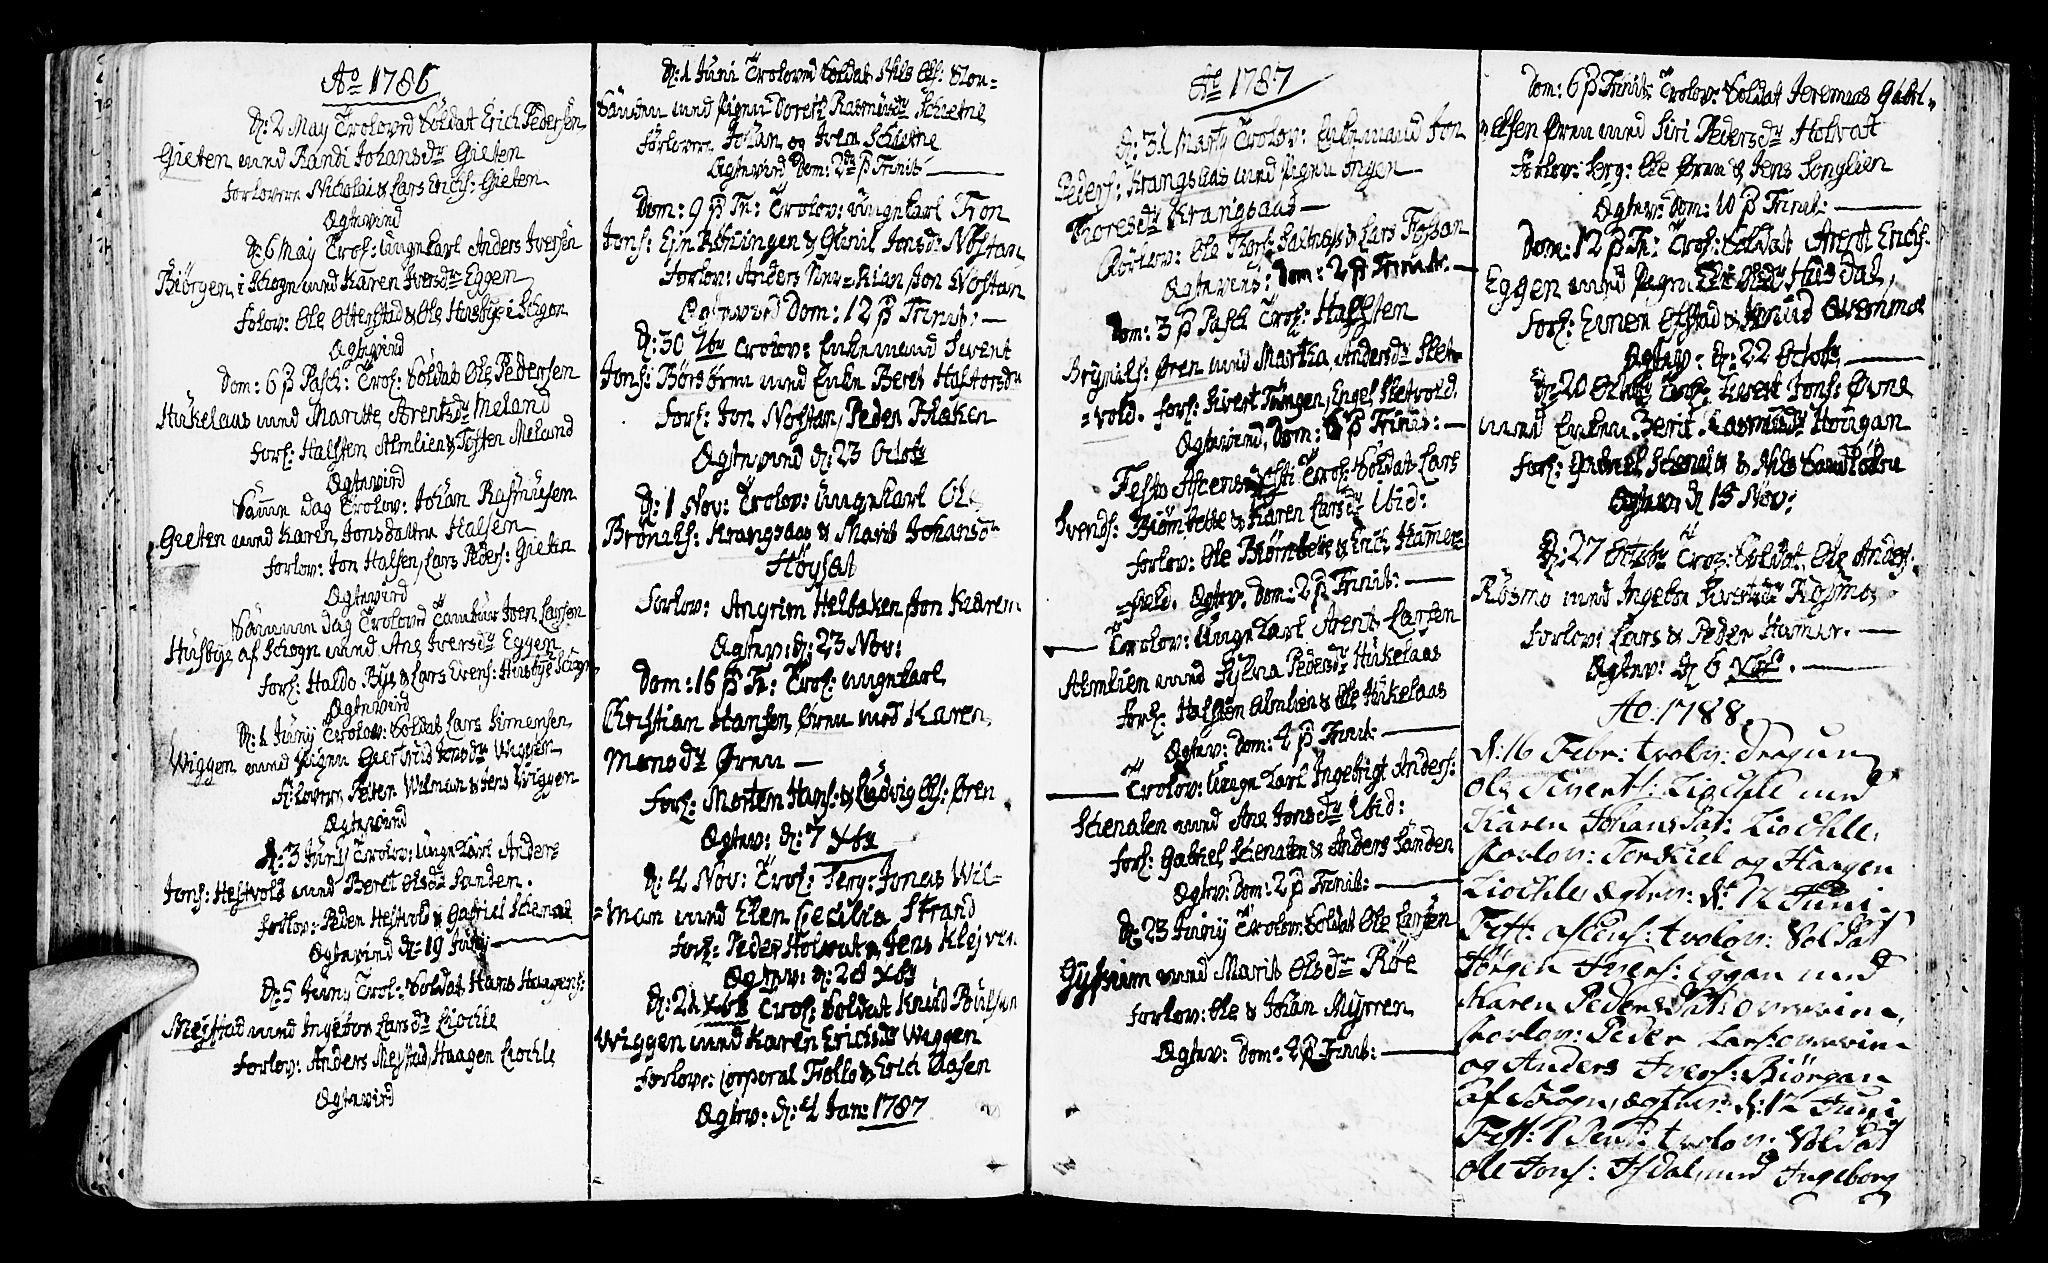 Ao 1786
d: 2 May Trolovd Soldat Erich Pedersen
Gieten med Randi Johansdr Gieten
forlovere Nicholai & Lars Erichs: Gieten
Ægtevied
d: 6 May Trol: ungkarl Anders Iversen
Biörgen i Schogn med Karen Iversdr Eggen
forlov: Ole Otterstad & Ole Husbye i Schogn
Ægtevied
Dom: 6 p Pasch: Trol: Soldat Ole Pedersen
Hukelaas med Maritte Arentsdr Meland
forl: Halsten Almlien & Tosten Meland
Ægtevied
Samme dag Trolov: Johan Rasmusen
Gieten med Karen Jonsdatter Halsen
forlov: Jon Halsen, Lars Peders: Gieten
Ægtevied
Samme dag Trolovd Tambur Iver Larsen
Husbye af Schogn med Ane Iversdr Eggen
forl: Haldo Bye & Lars Evens: Husbye Schogn
Ægtevied
d: 1 Juny Trolov: Soldat Lars Simensen
Wiggen med Pigen Giertrud Jonsdr Wiggen
forlovere Peter Wilman & Jens Wiggen
Ægtevied
d: 3 Juny Trolov: ungkarl Anders
Jons: Hestvold med Beret Olsdr Sanden.
forlov: Peder Hestvold & Gabriel Schenald
Ægtevied d: 19 July
d: 5 Juny Trol: Soldat Hans Haagens:
Meystad med Ingebor Larsdr Liochle
forlov: Anders Meystad, Haagen Liochle
Ægtevied
d: 1 Juni Trolovd Soldat Nils Ols:
med Pigen Doreth Rasmusdr Schietne
forlovere Johan og Iver Schietne
Ægtevied Dom: 2den p Trinit:
Dom: 9 p Tr: Trolov: ungkarl Tron
Jons: & Gunil Jonsdr Nostan
forlov: Anders Jon Nostan
Ægtevied Dom: 12 p Trinit:
d: 30 7br Trolov: Enkemand Sivert
Jons: Börsören med Enke Beret Halvorsdr
forl: Jon Nostan, Peder Braken
Ægteviid d: 23 Octobr
d: 1 Nov: Trolov: ungkarl Ole
Brönels: Krangsaas & Marit Johansdr
Höysat
forlov: Angrim Helbaken Jon Kaarem
Ægtev: d: 23 Nov:
Dom: 16 p Tr: Trol: ungkarl
Christian Hansen Ören med Karen
Monsdr Ören
forl: Morten Hans: & Ludvig Ols: Ören
Ægtev: d: 7 Xbr
d: 4 Nov: Trol: Jonas Wil=
=man med Elen Cecilia Strand
forl: Peder & Jens Klejven
Ægtev: d: 28 Xbr
d: 21 Xbr Trol: Soldat Knud Poulsen
Wiggen med Karen Erichsdr Wiggen
forlov: Corporal Follo & Erich Aasen
Ægtev: d: 4 Jan: 1787
Ao 1787
d: 31 Marty Trolov: Enkemand Jon
Peders: Krangsaas med Pigen Ingen
Thoresdr Krangsaas
forlov: Ole Thors: Saltnes & Lars Fossan
Ægteviet: Dom: 2 p Trinit:
Dom: 3 p Pasch Trol: Halsten
Brynils: Ören med Martha Andersdr Slet=
=vold. forl: Sivert Tungen, Engel Sletvold.
Ægteviid Dom: 6 p Trinit:
Festo Ascens: Xsti Trol: Soldat Lars
Svends: & Karen Larsdr Ibid:
forlov: Ole & Erich Hamer=
=feld. Ægtev: Dom: 2 p Trinit:
Trolov: Ungkarl Arent Larsen
Almlien med Sylna Pedersdr Hukelaas
forl: Halsten Almlien & Ole Hukelaas
Ægtev: Dom: 4 p Trinit:
Trolov: Ungkarl Ingebrigt Anders:
Schenalen med Ane Jonsdr Ibid:
forl: Gabriel Schenalen & Anders Sanden
Ægtev: Dom: 2 p Trinit:
d: 23 Juny Trolov: Soldat Ole Larsen
Gylheim med Marit Olsdr Röe
forlov: Ole & Johan Myrren
Ægtev: Dom: 4 p Trinit:
Dom: 6 p Trinit: Trolov: Soldat Jeremias Gabri=
=elsen Ören med Siri Pedersdr Holvat
forlov: Ole Ören & Jens Songlien
Ægtev: Dom: 10 p Trinit:
Dom: 12 p Tr: Trol: Soldat Arent Erichs:
Eggen med Pigen Olsdr Husdal,
forl: Einer Ofstad & Knud Qvemmoe
Ægtev: d: 22 Octobr
d: 20 Octobr Trol: Sivert Jons: Øvne
med Enken Berit Rasmusdr Hougan
forl: Gabriel & Nils
Ægtev: d 15 Nov:
d: 27 Octobr Trol: Soldat Ole Anders:
Rösmo med Ingebor Sivertsdr Rosmo
forlov: Lars & Peder Hamer.
Ægtev: d 6 Xbr.
Ao: 1788
d: 16 Febr: trolov: Dragun
Ole Siverts: Liochle med
Karen Johansdat: Liochle,
forlov: Torkiel og Haagen
Liochle, ægtev: d: 12 Juni
Fest: ascens: trolov: Soldat
Jörgen Ivers: Eggan med
Karen Pedersdat: overvine,
forlov: Peder Lars: overvine
og Anders Ivers: Biörgan
af Sogn, ægtev: d: 12 Juni
Fest: 1 Pent: trolov: Soldat
Ole Jons: Isdal med Ingeborg